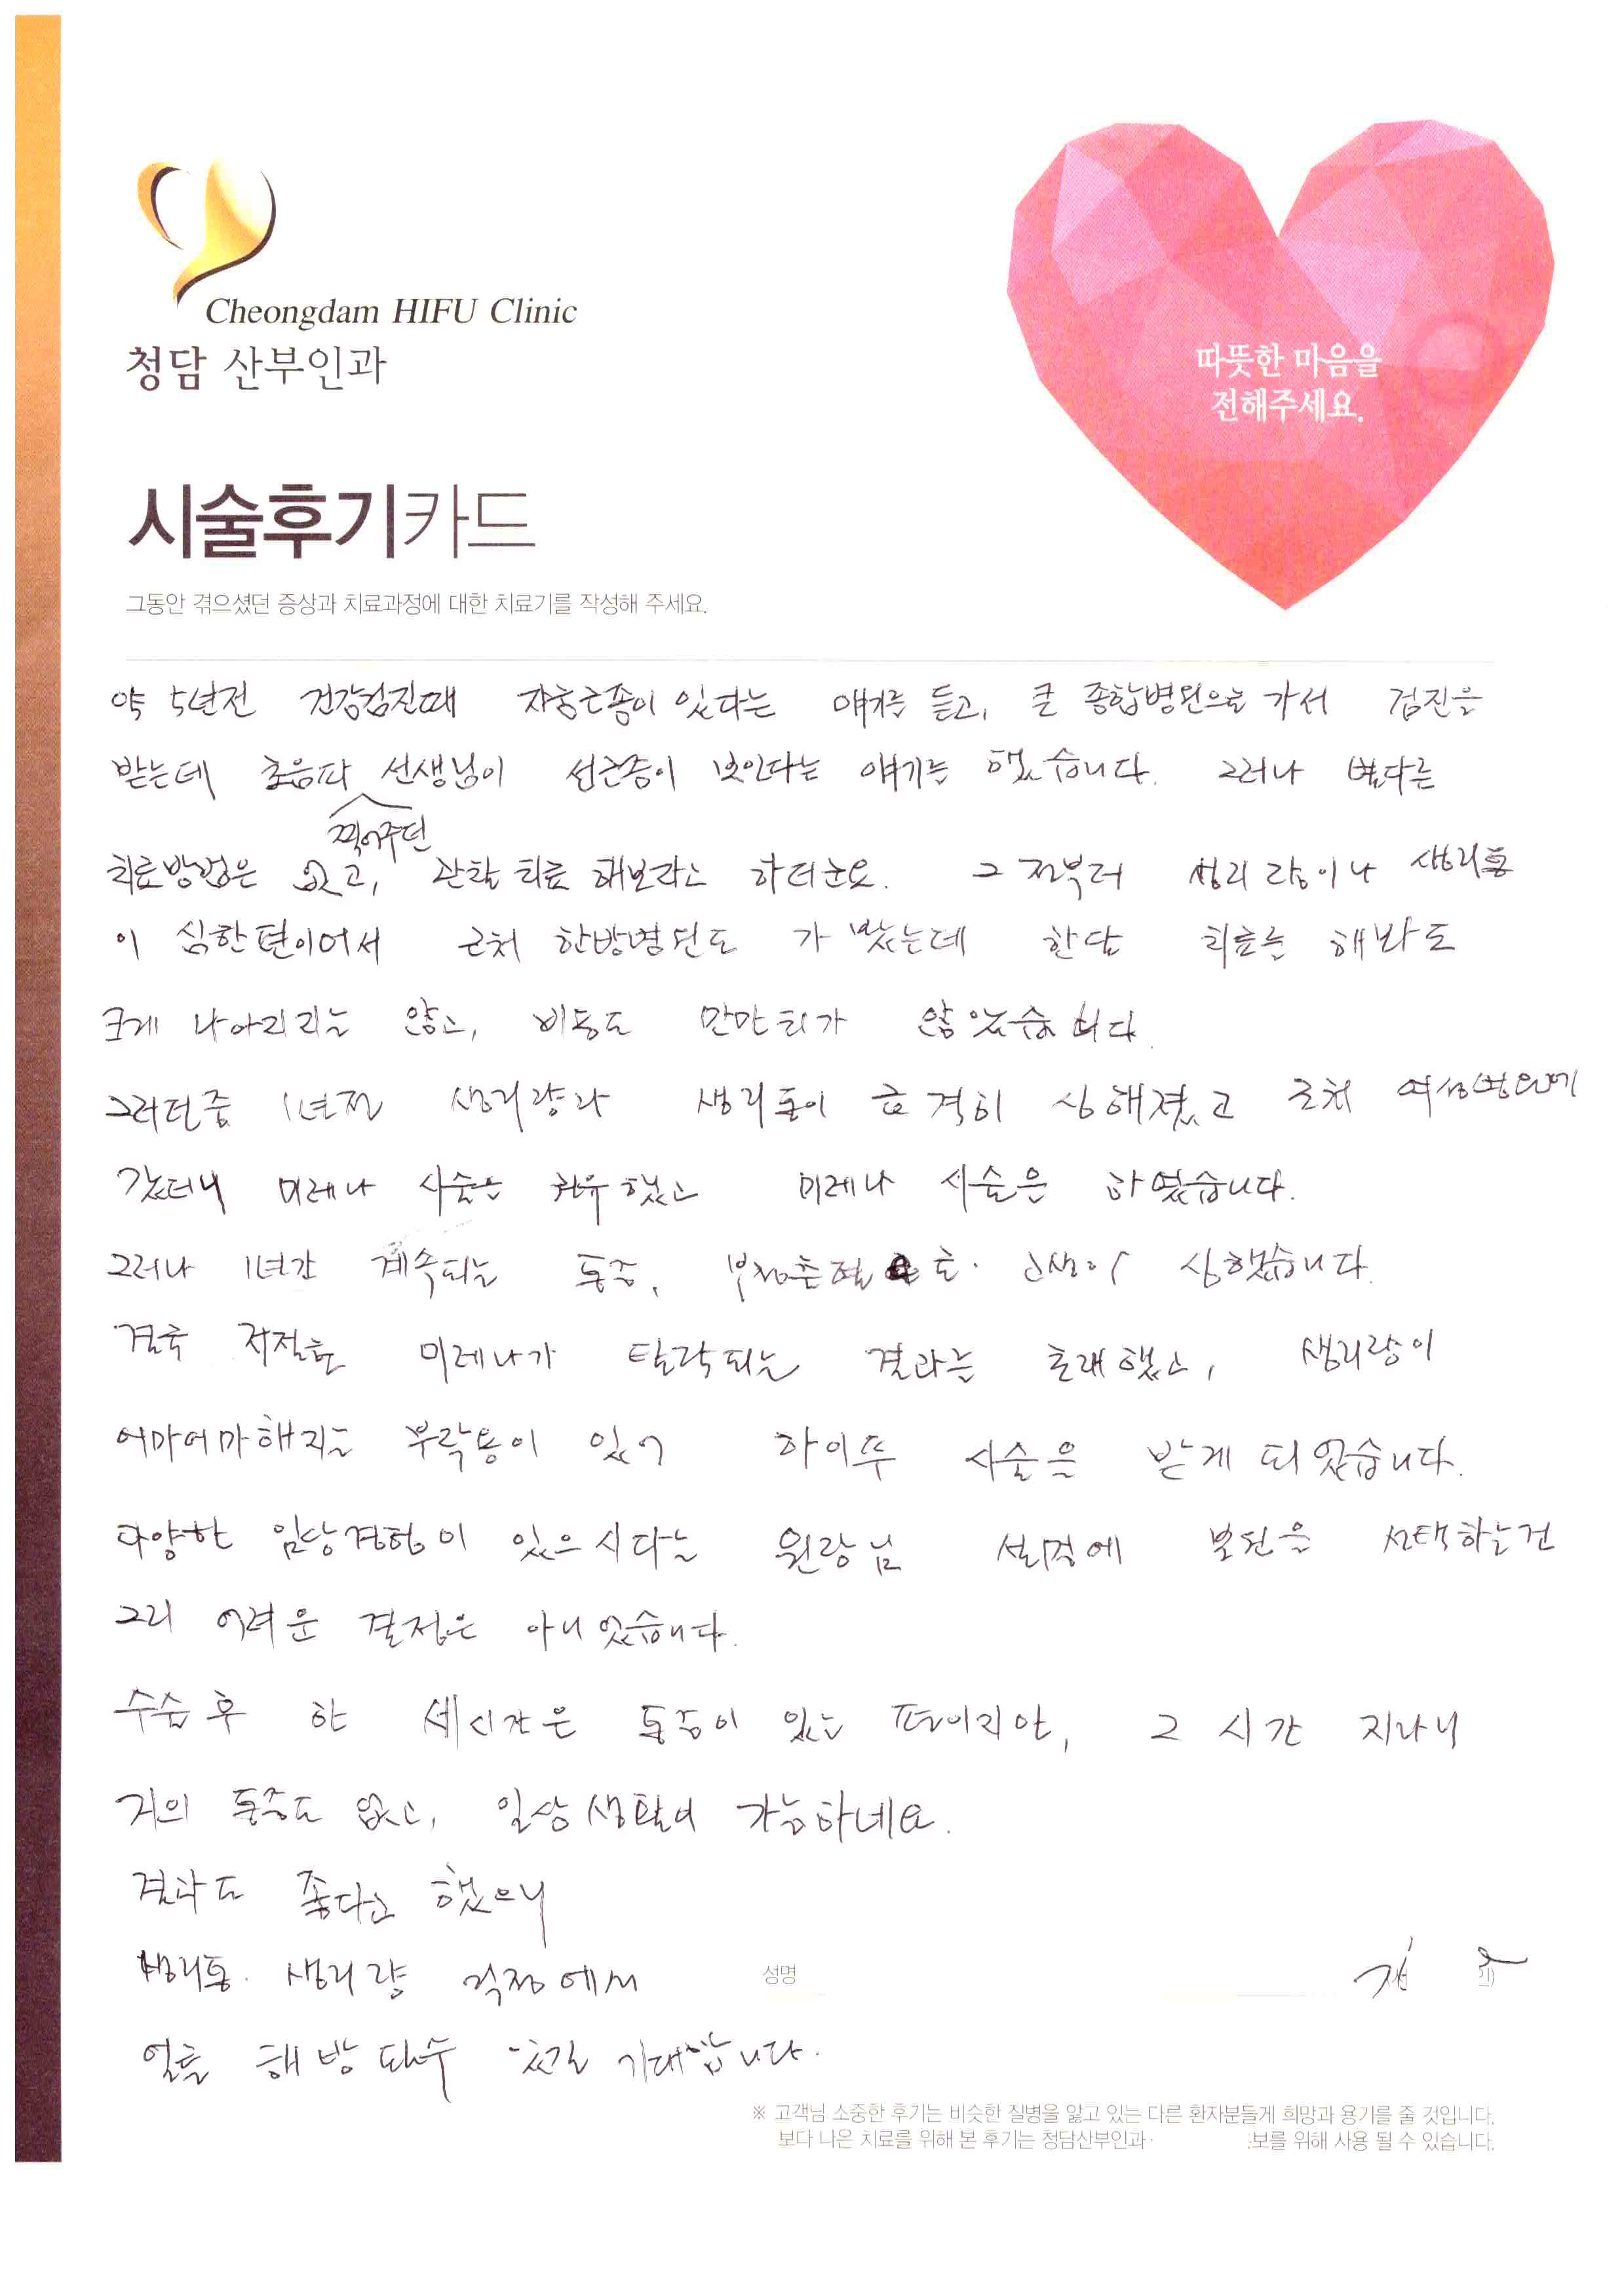 Cheongdam HIFU Clinic
청담 산부인과
따뜻한 마음을
전해주세요.
시술후기카드
그동안 겪으셨던 증상과 치료과정에 대한 치료기를 작성해 주세요.
약 5년전 건강검진때 자궁근종이 있다는 얘기를 듣고, 큰 종합병원으로 가서 검진을
받는데 초음파 찍어주던 선생님이 선근종이 보인다는 얘기를 했습니다. 그러나 별다른
치료방법은 없고, 관찰 치료 해보라고 하더군요. 그 전부터 생리량이나 생리통
이 심한편이어서 근처 한방병원도 가 봤는데 한달 치료를 해봐도
크게 나아지지는 않고, 비용도 만만치가 않았습니다.
그러던중 1년전 생리량과 생리통이 급격히 심해졌고 근처 여성병원에
갔더니 미레나 시술을 권유했고 미레나 시술을 하였습니다.
그러나 1년간 계속되는 통증, 부정출혈로 고생이 심했습니다.
결국 미레나가 탈락되는 결과를 초래했고, 생리량이
어마어마해지는 부작용이 있어 하이푸 시술을 받게 되었습니다.
다양한 임상경험이 있으시다는 원장님 실력에 병원을 선택하는건
그리 어려운 결정은 아니었습니다.
수술후 한 세시간은 통증이 있는 편이지만, 그 시간 지나니
거의 통증도 없고, 일상생활이 가능하네요.
결과도 좋다고 했으니
생리통. 생리량 걱정에서
얼른 해방될수 있길 기대합니다.
성명
김
※ 고객님 소중한 후기는 비슷한 질병을 앓고 있는 다른 환자분들게 희망과 용기를 줄 것입니다.
보다 나은 치료를 위해 본 후기는 청담산부인과 보를 위해 사용 될 수 있습니다.